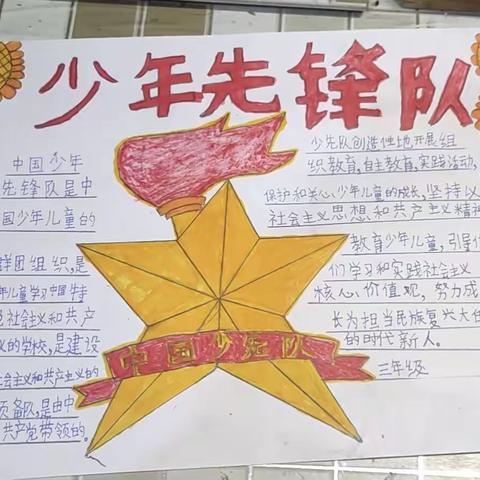 少年先锋队
中国少年
先锋队是中
国少年儿童的
群团组织,是
年儿童学习中国特
色社会主义和共产
义的学校,是建设
社会主义和共产主义的
预备队,是由中
共产党带领的。
中国少先队
少先队创造性地开展组
织教育,自主教育,实践活动,
保护和关心少年儿童的成长,坚持以
社会主义思想和共产主义精神
教育少年儿童,引导
们学习和实践社会主义
核心价值观,努力成
长为担当民族复兴大任
的时代新人。
三年级